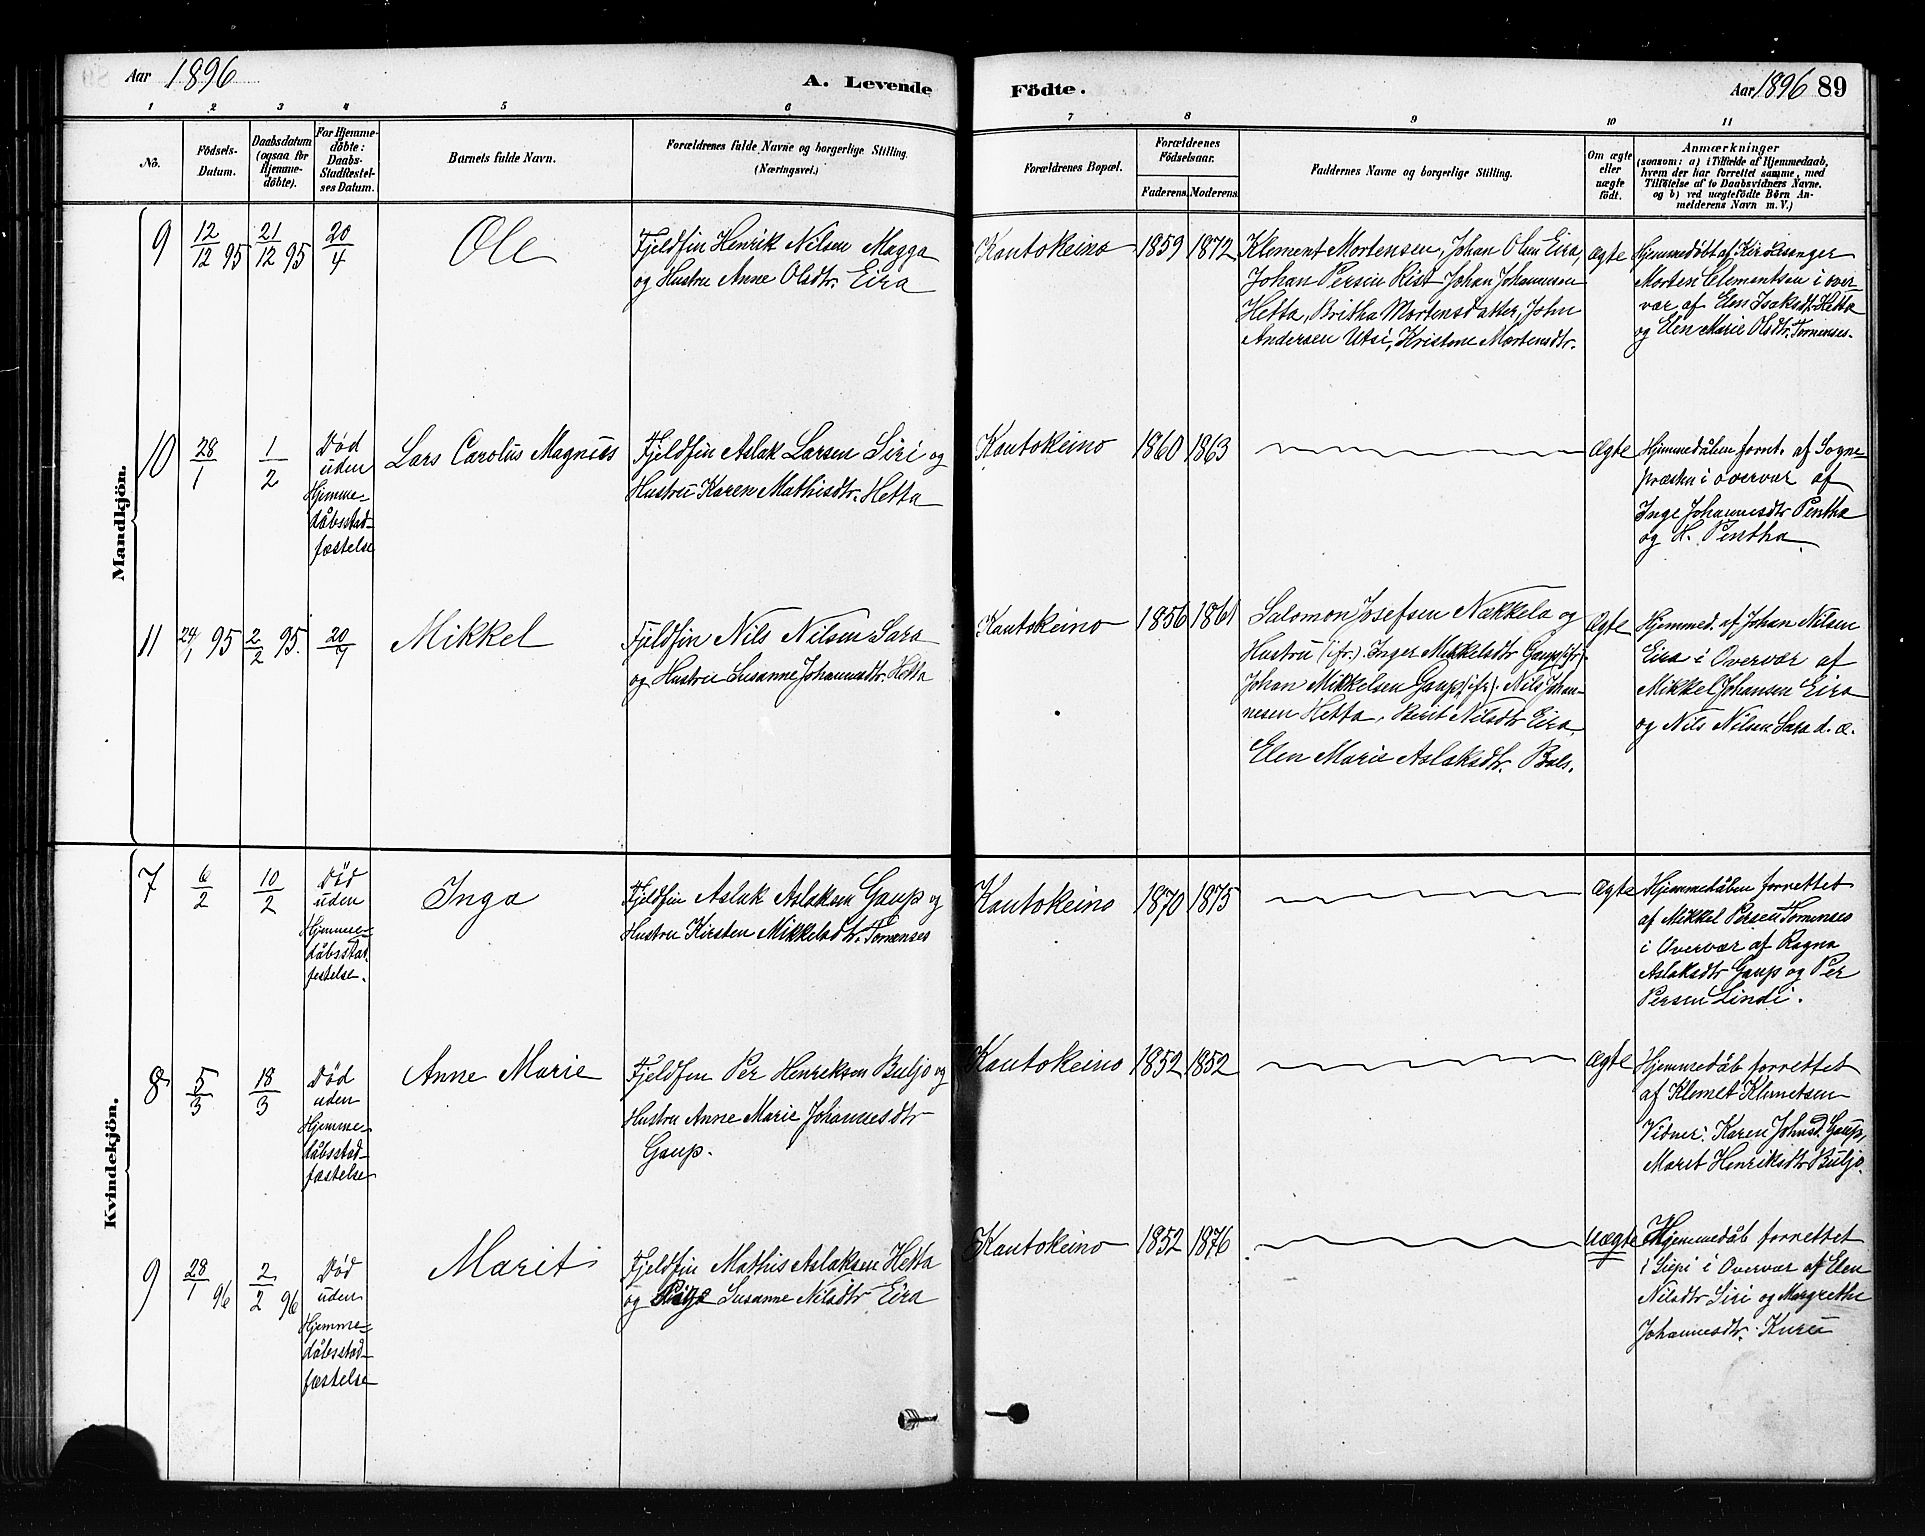 Aar 1896
A. Levende Födte.
Aar 1896 89
1 2 3 4 5 6 7 8 9 10 11
No.
Födsels-
Datum.
Daabsdatum
(ogsaa for
Hjemme-
döbte).
For Hjemme-
döbte:
Daabs-
Stadfæstel-
ses Datum.
Barnets fulde Navn.
Forældrenes fulde Navne og borgerlige Stilling.
(Næringsvei.)
Forældrenes Bopæl.
Forældrenes
Födselsaar.
Faderens. Moderens.
Faddernes Navne og borgerlige Stilling.
Om ægte
eller
uægte
födt.
Anmærkninger
(saasom: a) i Tilfælde af Hjemmedaab,
hvem der har forrettet samme, med
Tilföielse af to Daabsvidners Navne.
og b) ved uægtefödte Börn An-
melderens Navn m. V.)
Mandkjön.
9
12/12 95
21/12 95
20/4
Ole
Fjeldfin Henrik Nilsen Magga
og Hustru Anne Olsdtr. Eira
Kautokeino
1859
1872
Klement Mortensen, Johan Olsen Eira,
Johan Persen Rist Johan Johannesen
Hetta, Britha Mortensdatter, John
Andersen Utsi, Kristene Mortensdtr.
ægte
Hjemmedøbt af Kirkesanger
Morten Clementsen i over-
vær af Elen Isaksdtr. Hetta
og Elen Marie Olsdtr. Tornenses.
10
28/1
1/2
Død
uden
Hjemme-
dåbsstad-
fæstelse
Lars Carolus Magnus
Fjeldfin Aslak Larsen Siri og
Hustru Karen Mathisdtr. Hetta
Kautokeino
1860
1863
Ægte
Hjemmedåben forrt. af Sogne-
præsten i overvær af
Inge Johannesdtr Pentha
og H. Pentha.
11
24/1 95
2/2 95.
20/7
Mikkel
Fjeldfin Nils Nilsen Sara
og Hustru Susanne Johannesdtr. Hetta
Kautokeino
1856
1861
Salomon Josefsen Nækkela og
Hustru (ifr.). Inger Mikkelsdtr Gaup (ifr).
Johan Mikkelsen Gaup (ifr). Nils Johan-
nesen Hetta, Berit Nilsdtr Eira,
Elen Marie Aslaksdtr. Bals.
Ægte
Hjemmed. af Johan Nilsen
Eira i Overvær af
Mikkel Johansen Eira
og Nils Nilsen Sara d. æ.
Kvindekjön.
7
6/2
10/2
Død
uden
Hjemme-
dåbsstad-
festelse.
Inga
Fjeldfin Aslak Aslaksen Gaup og
Hustru Kirsten Mikkelsdtr. Tornenses
Kautokeino
1870
1875
ægte
Hjemmedåben forrettet
af Mikkel Persen Tornenses
i Overvær af Ragna
Aslaksdtr Gaup og Per
Persen Lindi.
8
5/3
18/3
Død
uden
Hjemme-
dåbsstad-
fæstelse
Anne Marie
Fjeldfin Per Henriksen Buljo og
Hustru Anne Marie Johannesdtr
Gaup.
Kautokeino
1852
1852
ægte
Hjemmedåb forrettet
af Klemet Klemetsen
Vidner: Karen Johnsd. Gaup,
Marit Henriksdtr Buljo.
9
28/1 96
2/2 96
Død
uden
Hjemme-
dåbsstad-
fæstelse
Marit
Fjeldfin Mathis Aslaksen Hetta
og Pige Susanne Nilsdtr Eira
Kautokeino
1852
1876
uægte
Hjemmedåb forrettet
i Siepi i Overvær af Elen
Nilsdtr Siri og Margrethe
Johannesdtr. Kurra